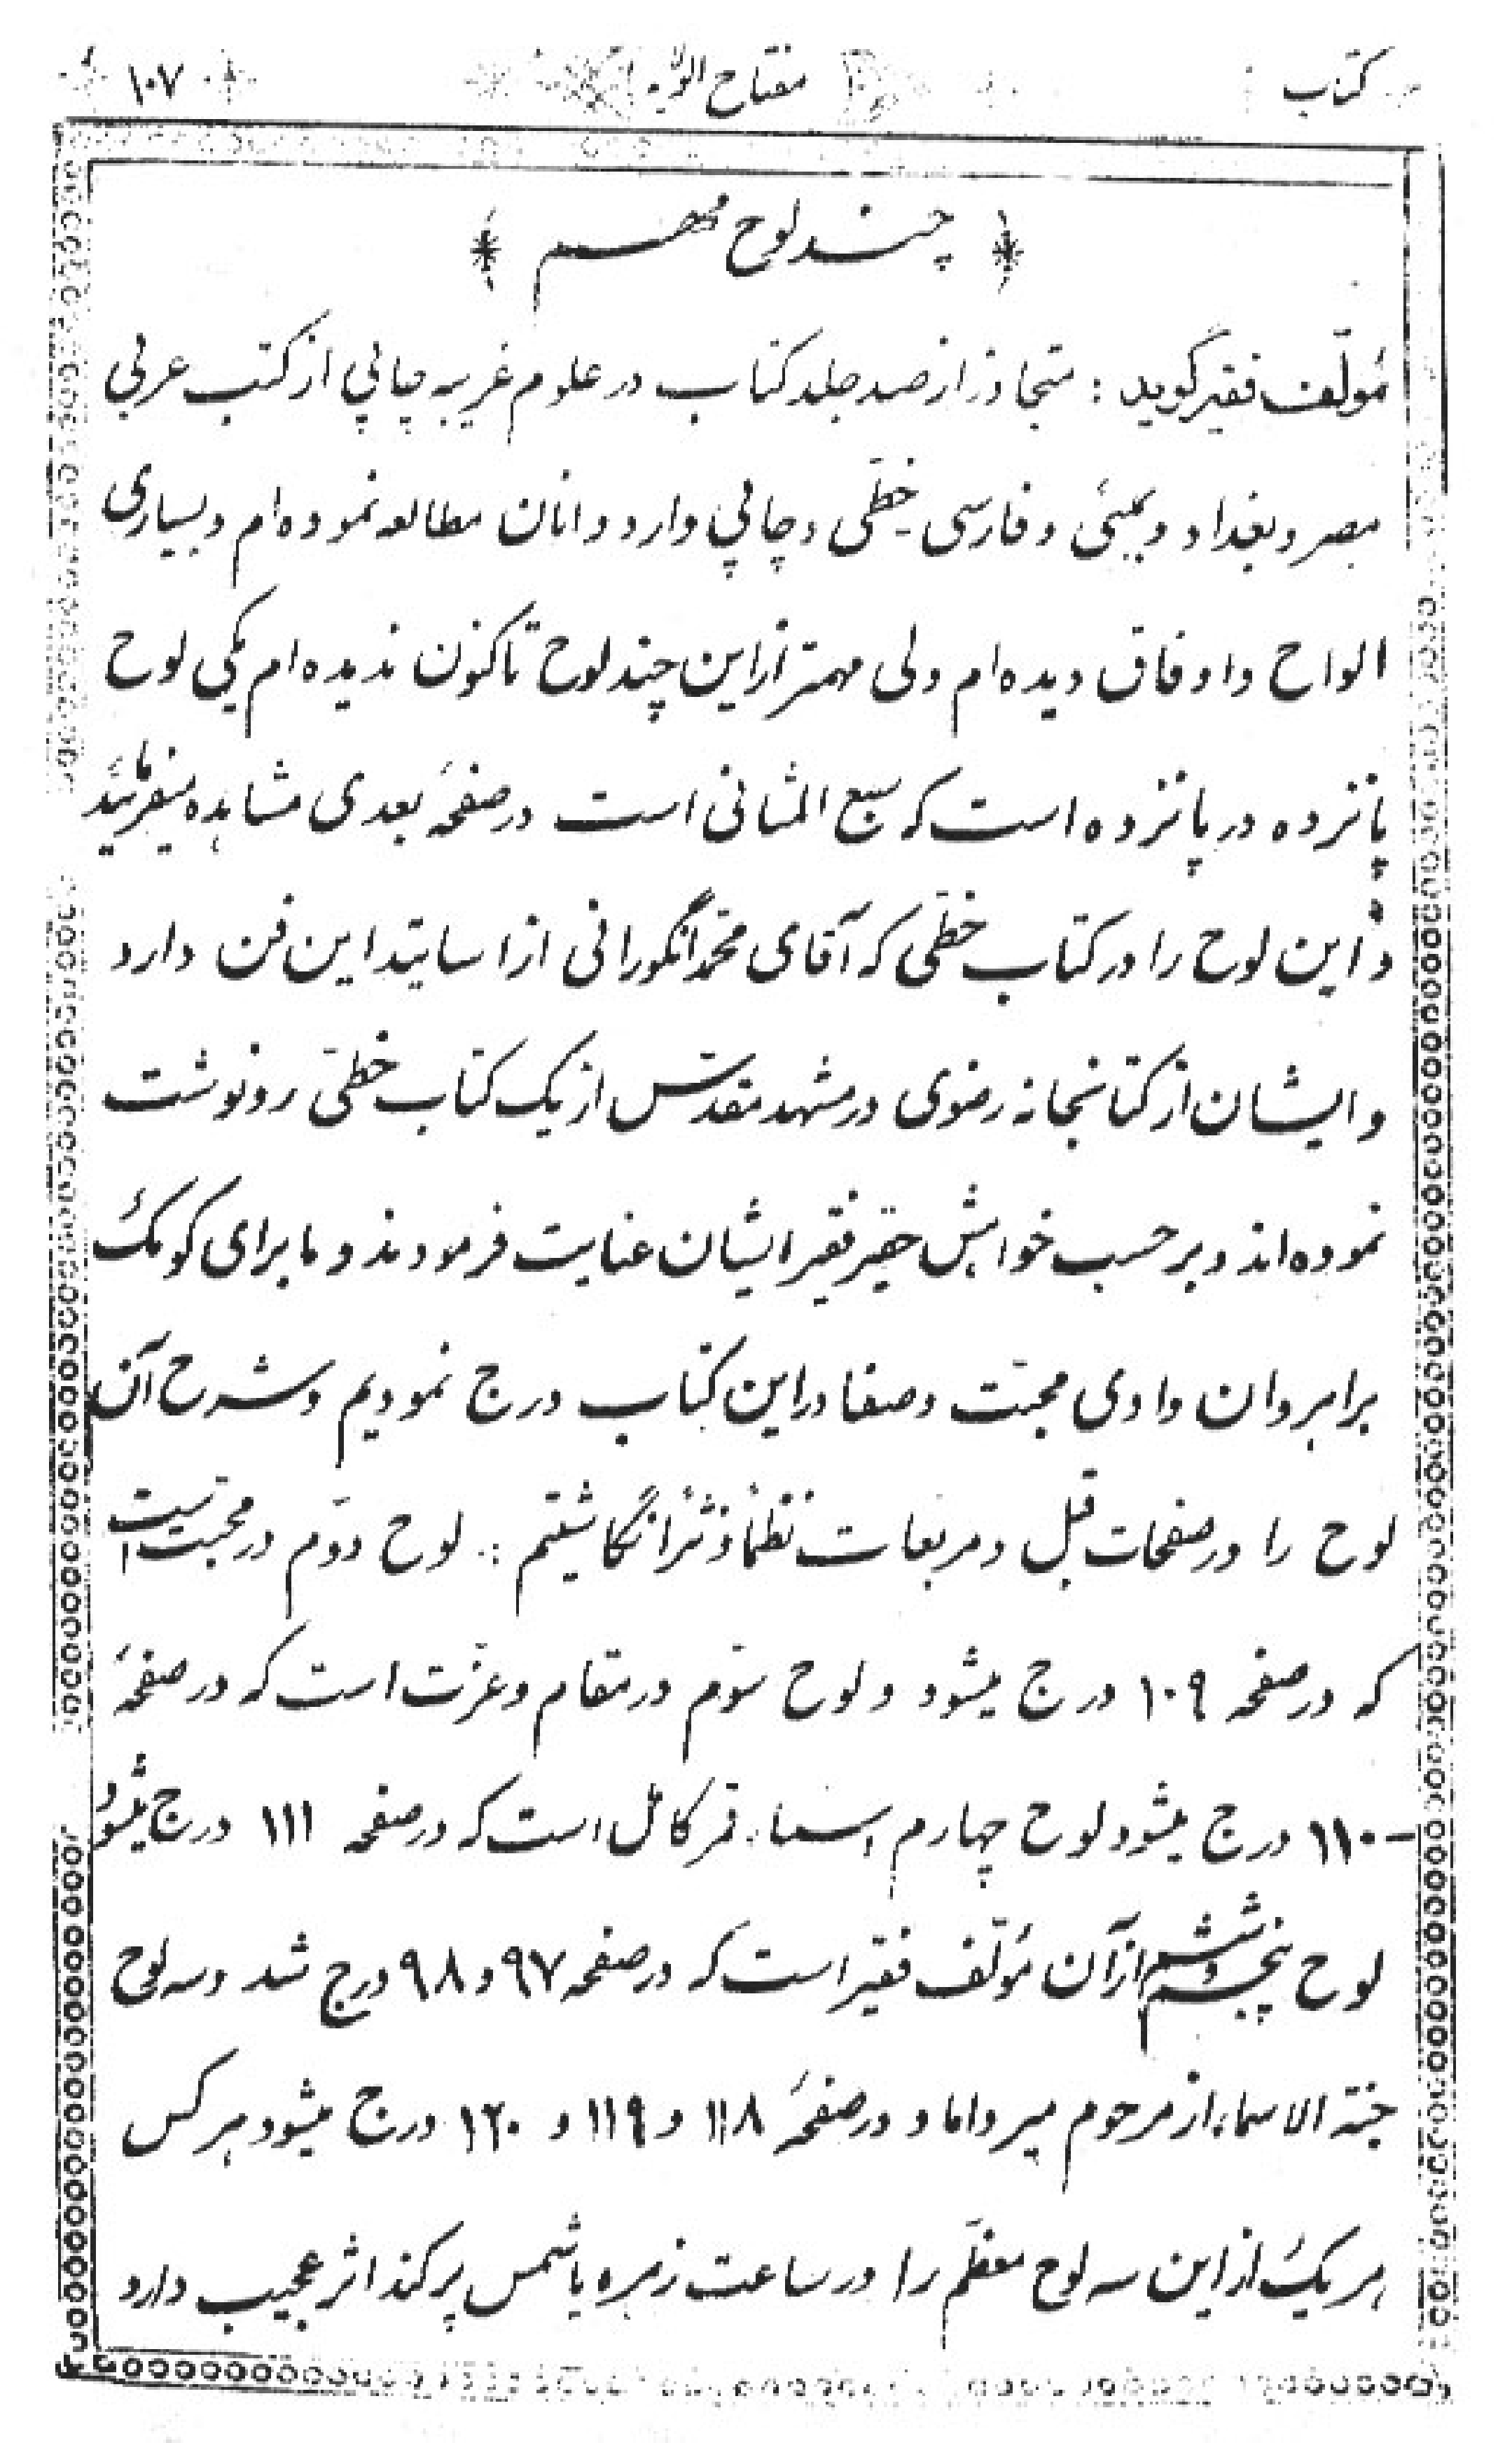 کتاب مفتاح الولایه ۱۰۷
چند لوح مهم
مؤلّف فقیر گوید : متجاوز از صد جلد کتاب در علوم غریبه چاپی از کتب عربی
مصر و بغداد و بمبئی و فارسی - خطّی و چاپی وارد و انان مطالعه نموده ام و بسیاری
الواح و اوفاق دیده ام ولی مهمتر از این چند لوح تاکنون ندیده ام یکی لوح
پانزده در پانزده است که سبع المثانی است در صفحهٔ بعدی مشاهده میفرمائید
و این لوح را در کتاب خطّی که آقای محمّد انگورانی از اساتید این فن دارد
و ایشان از کتابخانه رضوی در مشهد مقدّس از یک کتاب خطّی رونوشت
نموده اند و بر حسب خواهش حقیر فقیر ایشان عنایت فرمودند و ما برای کومک
براهروان وادی محبّت و صفا در این کتاب درج نمودیم و شرح آن
لوح را در صفحات قبل و مربعات نظماً و نثراً نگاشتیم : لوح دوّم در محبّت است
که در صفحه ۱۰۹ درج میشود و لوح سوّم در مقام و عزّت است که در صفحهٔ
۱۱۰ درج میشود لوح چهارم اسماء قمر کامل است که در صفحه ۱۱۱ درج میشود
لوح پنجم و ششم از آن مؤلّف فقیر است که در صفحه ۹۷ و ۹۸ درج شد و سه لوح
جنّة الاسماء از مرحوم میرداماد در صفحهٔ ۱۱۸ و ۱۱۹ و ۱۲۰ درج میشود هر کس
هر یک از این سه لوح معظّم را در ساعت زهره یا شمس پر کند اثر عجیب دارد